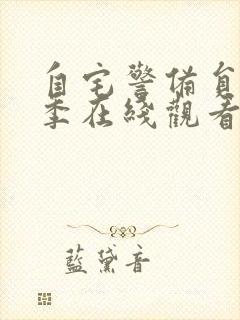 自宅警備員
季在綫觀看
藍黛音